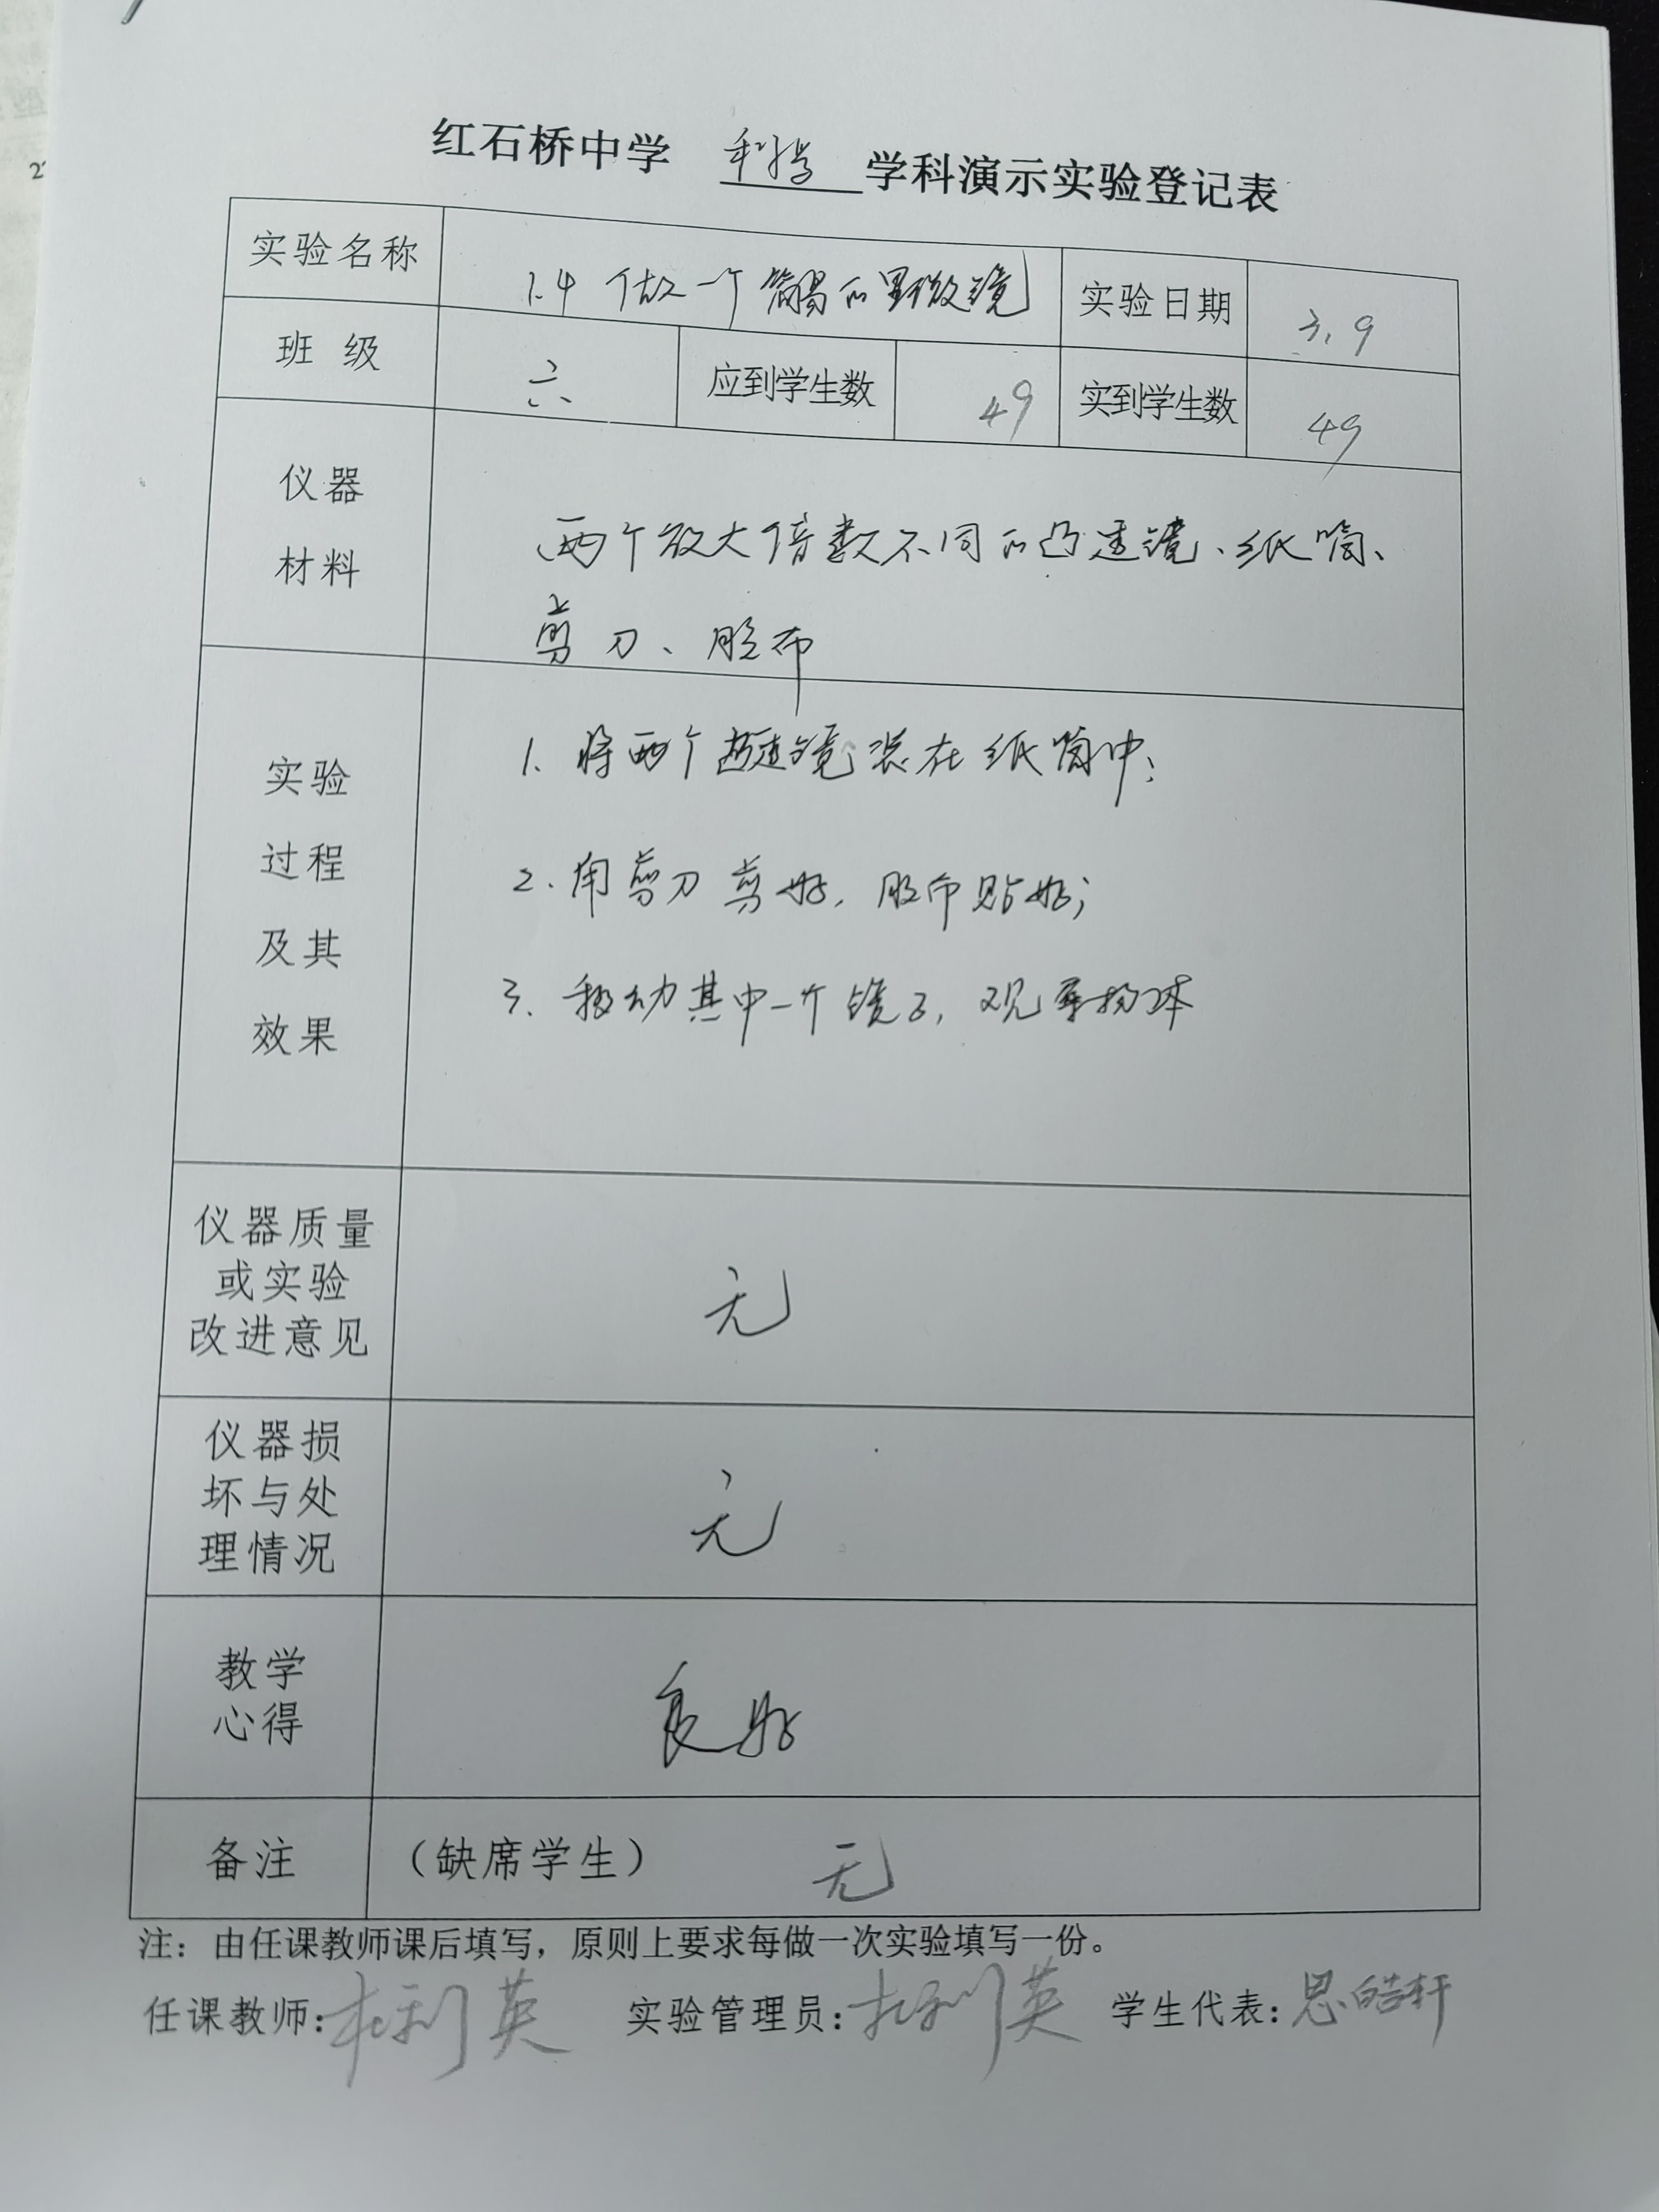 红石桥中学 科学 学科演示实验登记表
实验名称 1.4 做一个简易的显微镜 实验日期 3.9
班 级 六 应到学生数 49 实到学生数 49
仪器
材料
两个放大倍数不同的凸透镜、纸筒、
剪刀、胶布
实验
过程
及其
效果
1. 将两个凸透镜装在纸筒中;
2. 用剪刀剪好,胶布贴好;
3. 移动其中一个镜子,观察物体
仪器质量
或实验
改进意见
无
仪器损
坏与处
理情况
无
教学
心得
良好
备注 (缺席学生) 无
注:由任课教师课后填写,原则上要求每做一次实验填写一份。
任课教师:杜利英 实验管理员:杜利英 学生代表:思皓轩